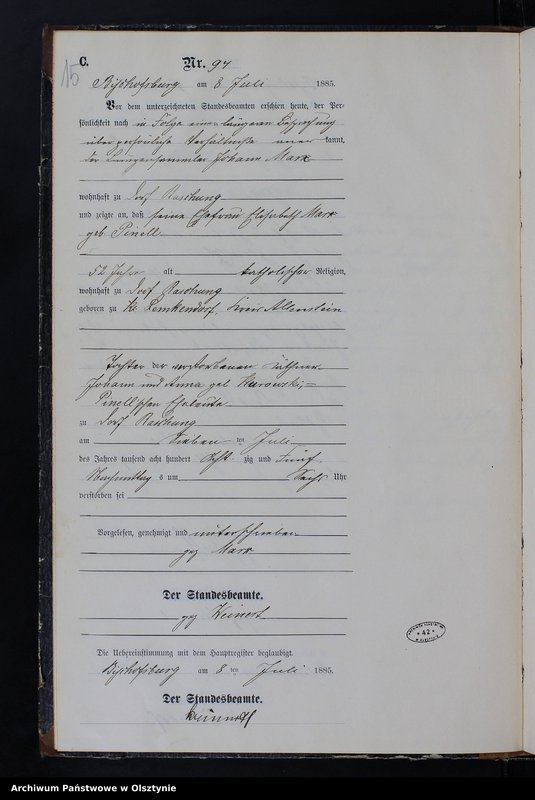 15
C.
Nr. 94
Bischofsburg am 8 Juli 1885.
Vor dem unterzeichneten Standesbeamten erschien heute, der Per-
sönlichkeit nach in Folge einer längeren Besprechung
über persönliche Verhältnisse aner kannt,
der Lumpensammler Johann Marx
wohnhaft zu Dorf Raschung
und zeigte an, daß seine Ehefrau Elisabeth Marx
geb Pinell
52 Jahre alt katholischer Religion,
wohnhaft zu Dorf Raschung
geboren zu Kl. Lemkendorf, Kreis Allenstein
Tochter der verstorbenen Käthner
Johann und Anna geb Kurowski,=
Pinell'schen Eheleute
zu Dorf Raschung
am Sieben ten Juli
des Jahres tausend acht hundert Acht zig und Fünf
Nachmittag s um Sechs Uhr
verstorben sei
Vorgelesen, genehmigt und unterschrieben
gez Marx
Der Standesbeamte.
gez Weinert
Die Uebereinstimmung mit dem Hauptregister beglaubigt.
Bischofsburg am 8 ten Juli 1885.
Der Standesbeamte.
Weinert
* 42 *
Archiwum Państwowe w Olsztynie